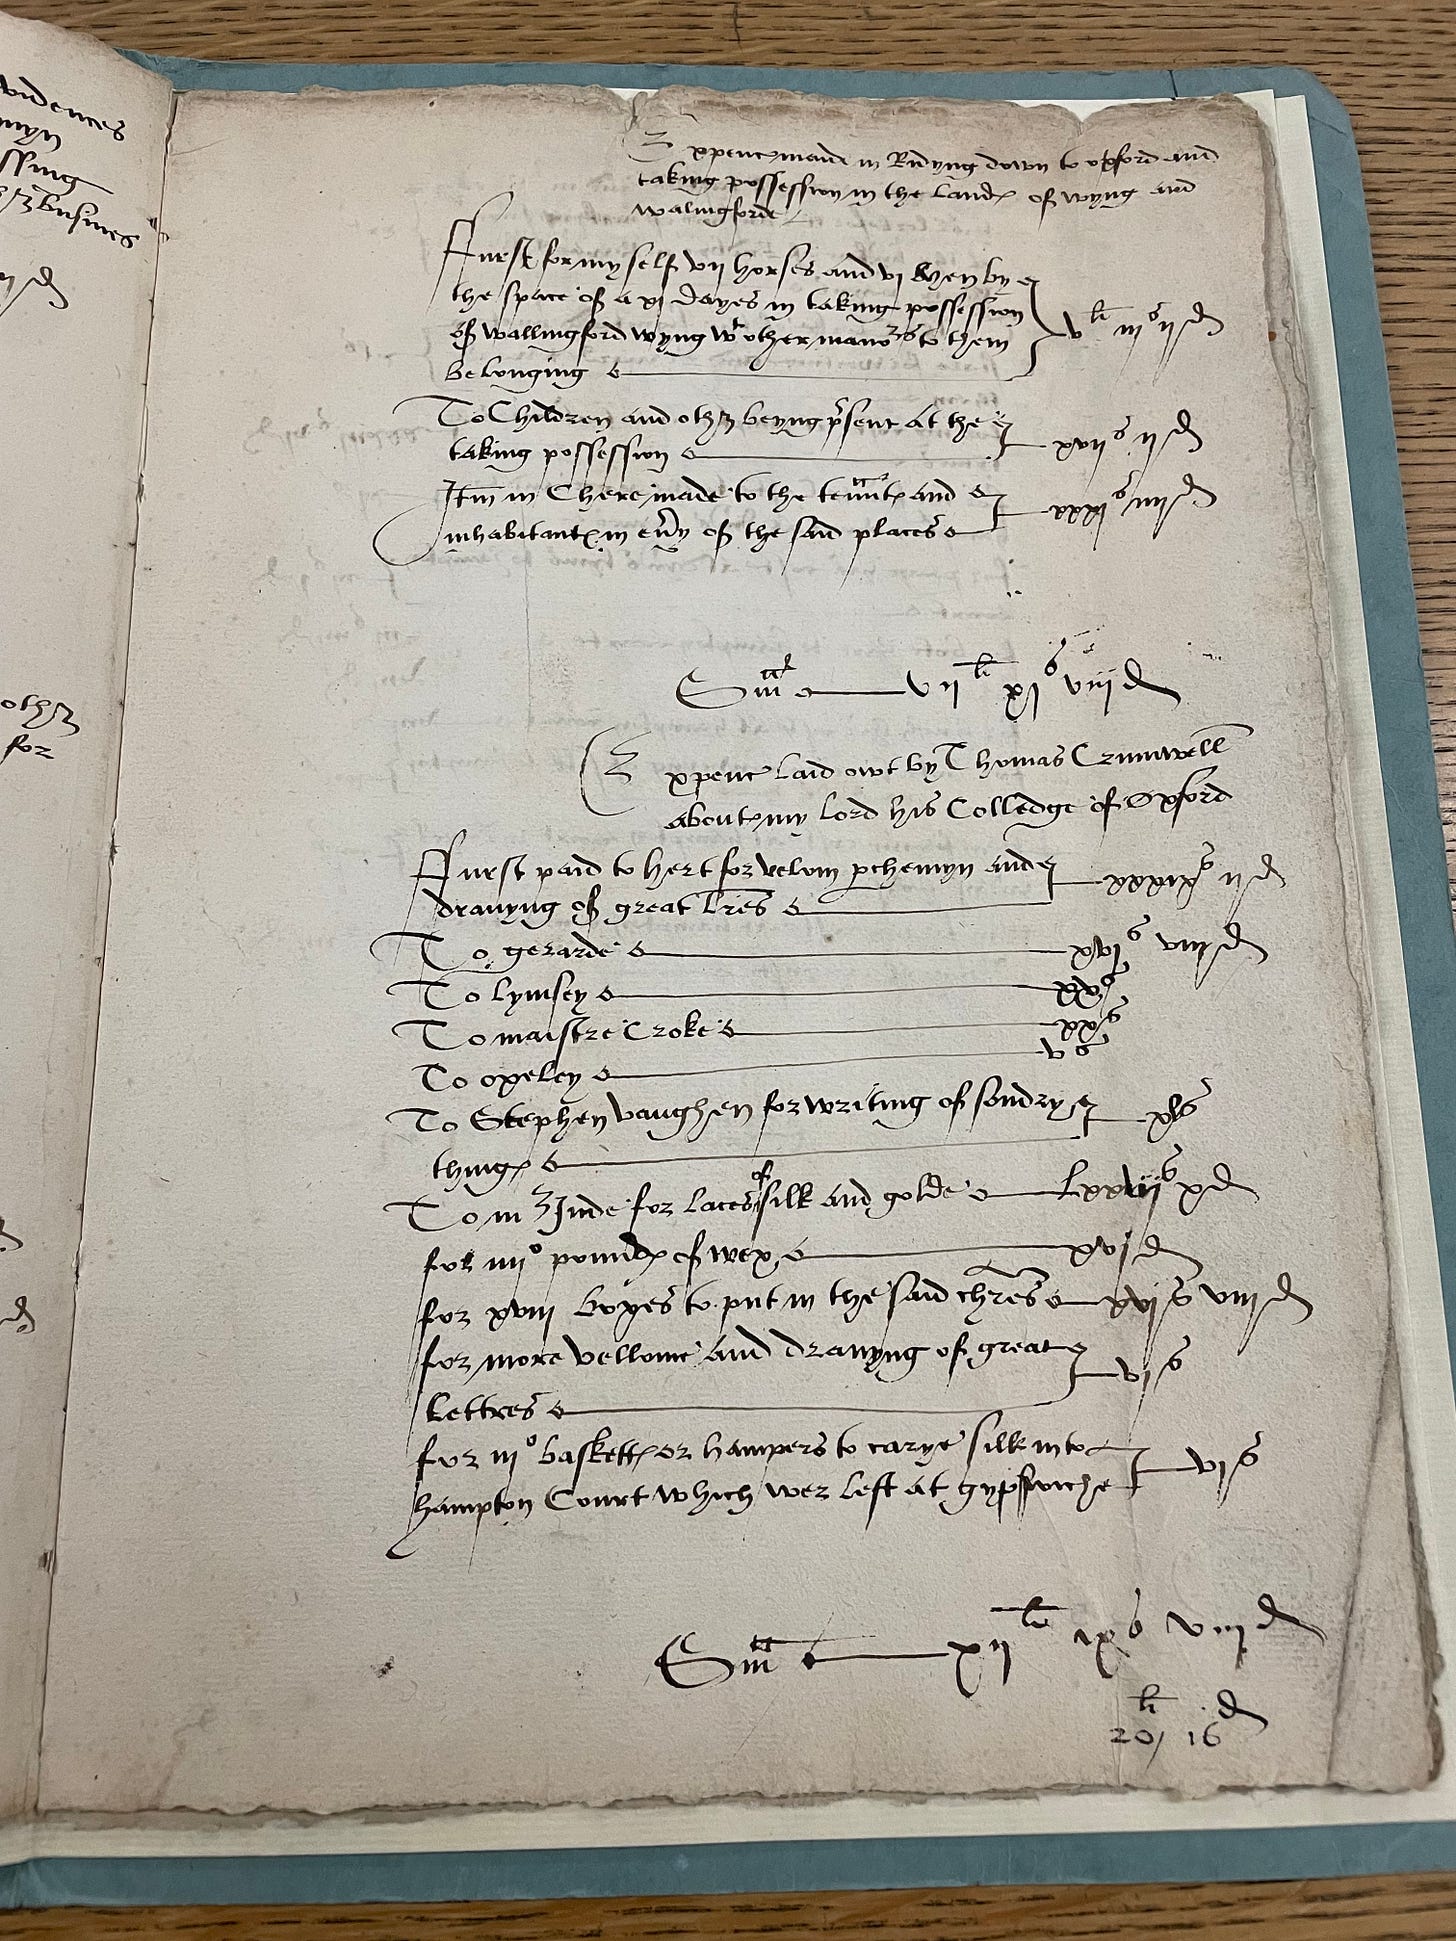 vidences
myn
ssing
busines
othr
for
Expenc made in Ridyng down to oxford and
taking possession in the Landes of wyng and
walingforde
Furst for my self vii horses and vi Men by
the space of a xi dayes in taking possession
of wallingford wyng wt other manors to them
belonging vli iiis iid
To Children and othr beyng psent at the
taking possession xviis iid
Itm in Chere made to the tenntes and
inhabitantes in eny of the said places iiiid
Sma viili xis viiid
Expenc laid owt by Thomas Crumwell
aboute my lord his Colledge of Oxford
Furst paid to hert for velom pchemyn and
drawyng of great lres xxxixs iid
To gerarde xvis viiid
To lymsey xxs
To maistre Croke xxs
To oxeley vs
To Stephen vaughen for writing of sondry
thinges xls
To mr Jude for laces of silk and golde Lxxviis xd
for iiiio poundes of wex xvid
for xviii boxes to put in the said chres xvis viiid
for more vellome and drawyng of great
Lettres vis
for iiio baskettes or hampers to carye silk into
hampton Court which wer left at gypswiche vis
Sma xiili ixs viiid
20li 16d